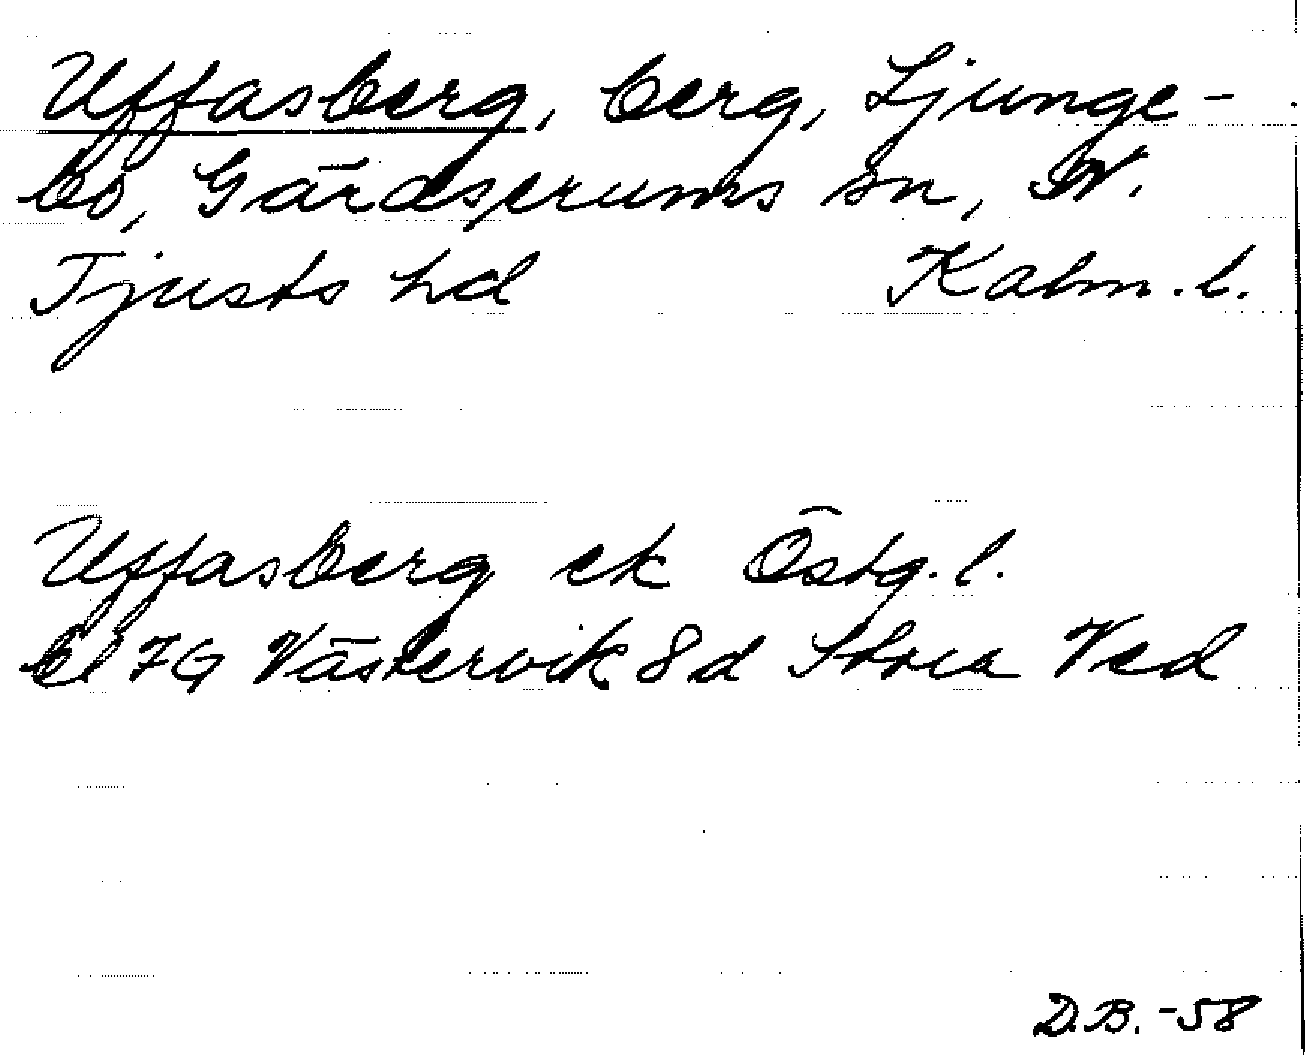 Uffasberg, berg, Ljunge-
bo, Gärdserums sn, N.
Tjusts hd Kalm. l.
Uffasberg ek Östg. l.
bl 7G Västervik 8d Stora Ved
D.B. -58